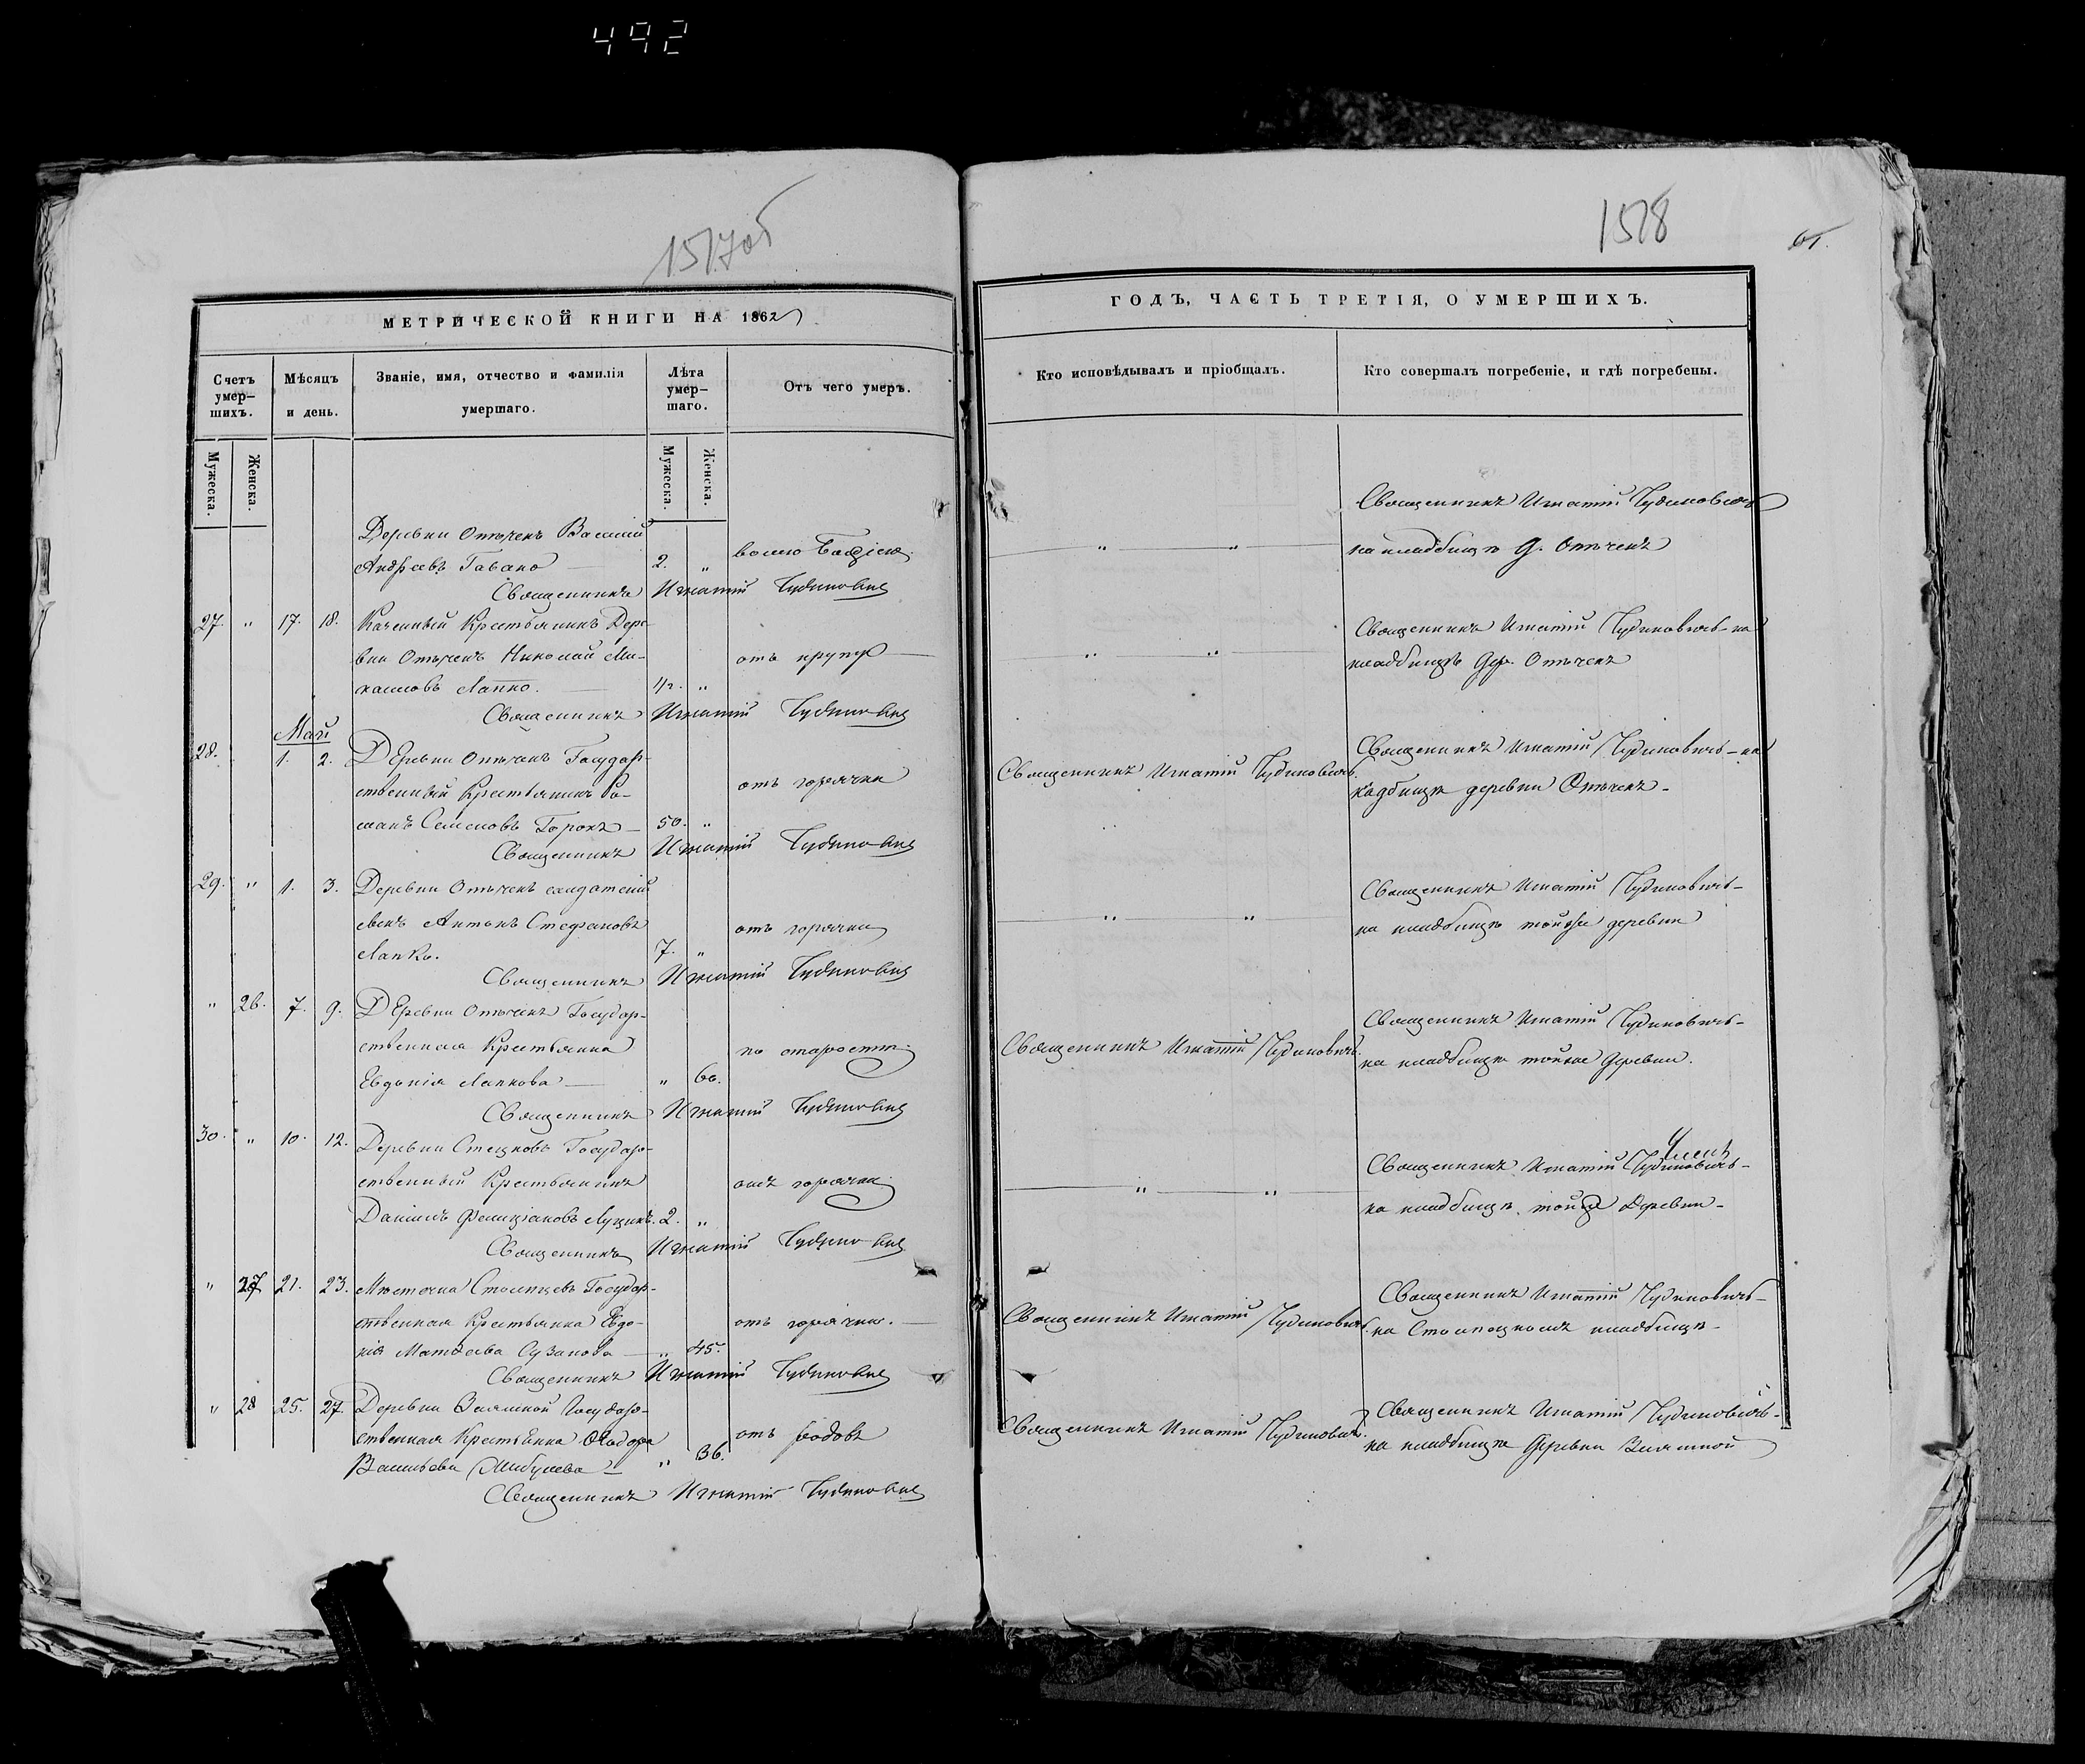 492
1517об
1518
61.
МЕТРИЧЕСКОЙ КНИГИ НА 1862
ГОДЪ, ЧАСТЬ ТРЕТІЯ, О УМЕРШИХЪ.
Счетъ умер-шихъ.
Мѣсяцъ и день.
Званіе, имя, отчество и фамилія умершаго.
Лѣта умер-шаго.
Отъ чего умеръ.
Кто исповѣдывалъ и пріобщалъ.
Кто совершалъ погребеніе, и гдѣ погребены.
Мужеска.
Женска.
Мужеска.
Женска.
Деревни Отѣченъ Василій
Андреевъ Гавако 2. „
„ „
Священникъ Игнатій Чудиновичъ
на кладбищѣ д. Отѣченъ
Священникъ Игнатій Чудиновичъ
27. „ 17. 18. Казенный Крестьянинъ Дере-
вни Отѣченъ Николай Ми-
хаиловъ Лапко. 1/2. „
отъ крупу
„ „
Священникъ Игнатій Чудиновичъ - на
кладбищѣ дер. Отѣченъ
Священникъ Игнатій Чудиновичъ
Май
28. 1. 2. Деревни Отѣченъ Государ-
ственный Крестьянинъ Ро-
манъ Семеновъ Горохъ 50. „
отъ горячки
Священникъ Игнатій Чудиновичъ.
Священникъ Игнатій Чудиновичъ - на
кадбищѣ деревни Отѣченъ -
Священникъ Игнатій Чудиновичъ
29. „ 1. 3. Деревни Отѣченъ салдатскій
сынъ Антонъ Стефановъ
Лапко. 7. „
отъ горячки
„ „
Священникъ Игнатій Чудиновичъ -
на кладбищѣ тойже деревни
Священникъ Игнатій Чудиновичъ
„ 26. 7. 9. Деревни Отѣченъ Государ-
ственная Крестьянка
Евдокія Лапкова „ 60.
по старости.
Священникъ Игнатій Чудиновичъ.
Священникъ Игнатій Чудиновичъ -
на кладбищѣ тойже деревни.
Священникъ Игнатій Чудиновичъ
30. „ 10. 12. Деревни Стецковъ Государ-
ственный Крестьянинъ
Даніилъ Фелиціановъ Луцикъ. 2. „
отъ горячки.
„ „
Священникъ Игнатій Чудиновичъ -
на кладбищѣ тойже Деревни -
Священникъ Игнатій Чудиновичъ
„ 27 21. 23. Мѣстечка Столпцевъ Государ-
ственная Крестьянка Евдо-
кія Матѳеева Сузанова „ 45.
отъ горячки.
Священникъ Игнатій Чудиновичъ.
Священникъ Игнатій Чудиновичъ -
на Столпецкомъ кладбищѣ -
Священникъ Игнатій Чудиновичъ
„ 28 25. 27. Деревни Заямной Государ-
ственная Крестьянка Ѳеодора
Васильева „ 36.
отъ родовъ
Священникъ Игнатій Чудиновичъ.
Священникъ Игнатій Чудиновичъ -
на кладбищѣ Деревни Заямной
Священникъ Игнатій Чудиновичъ